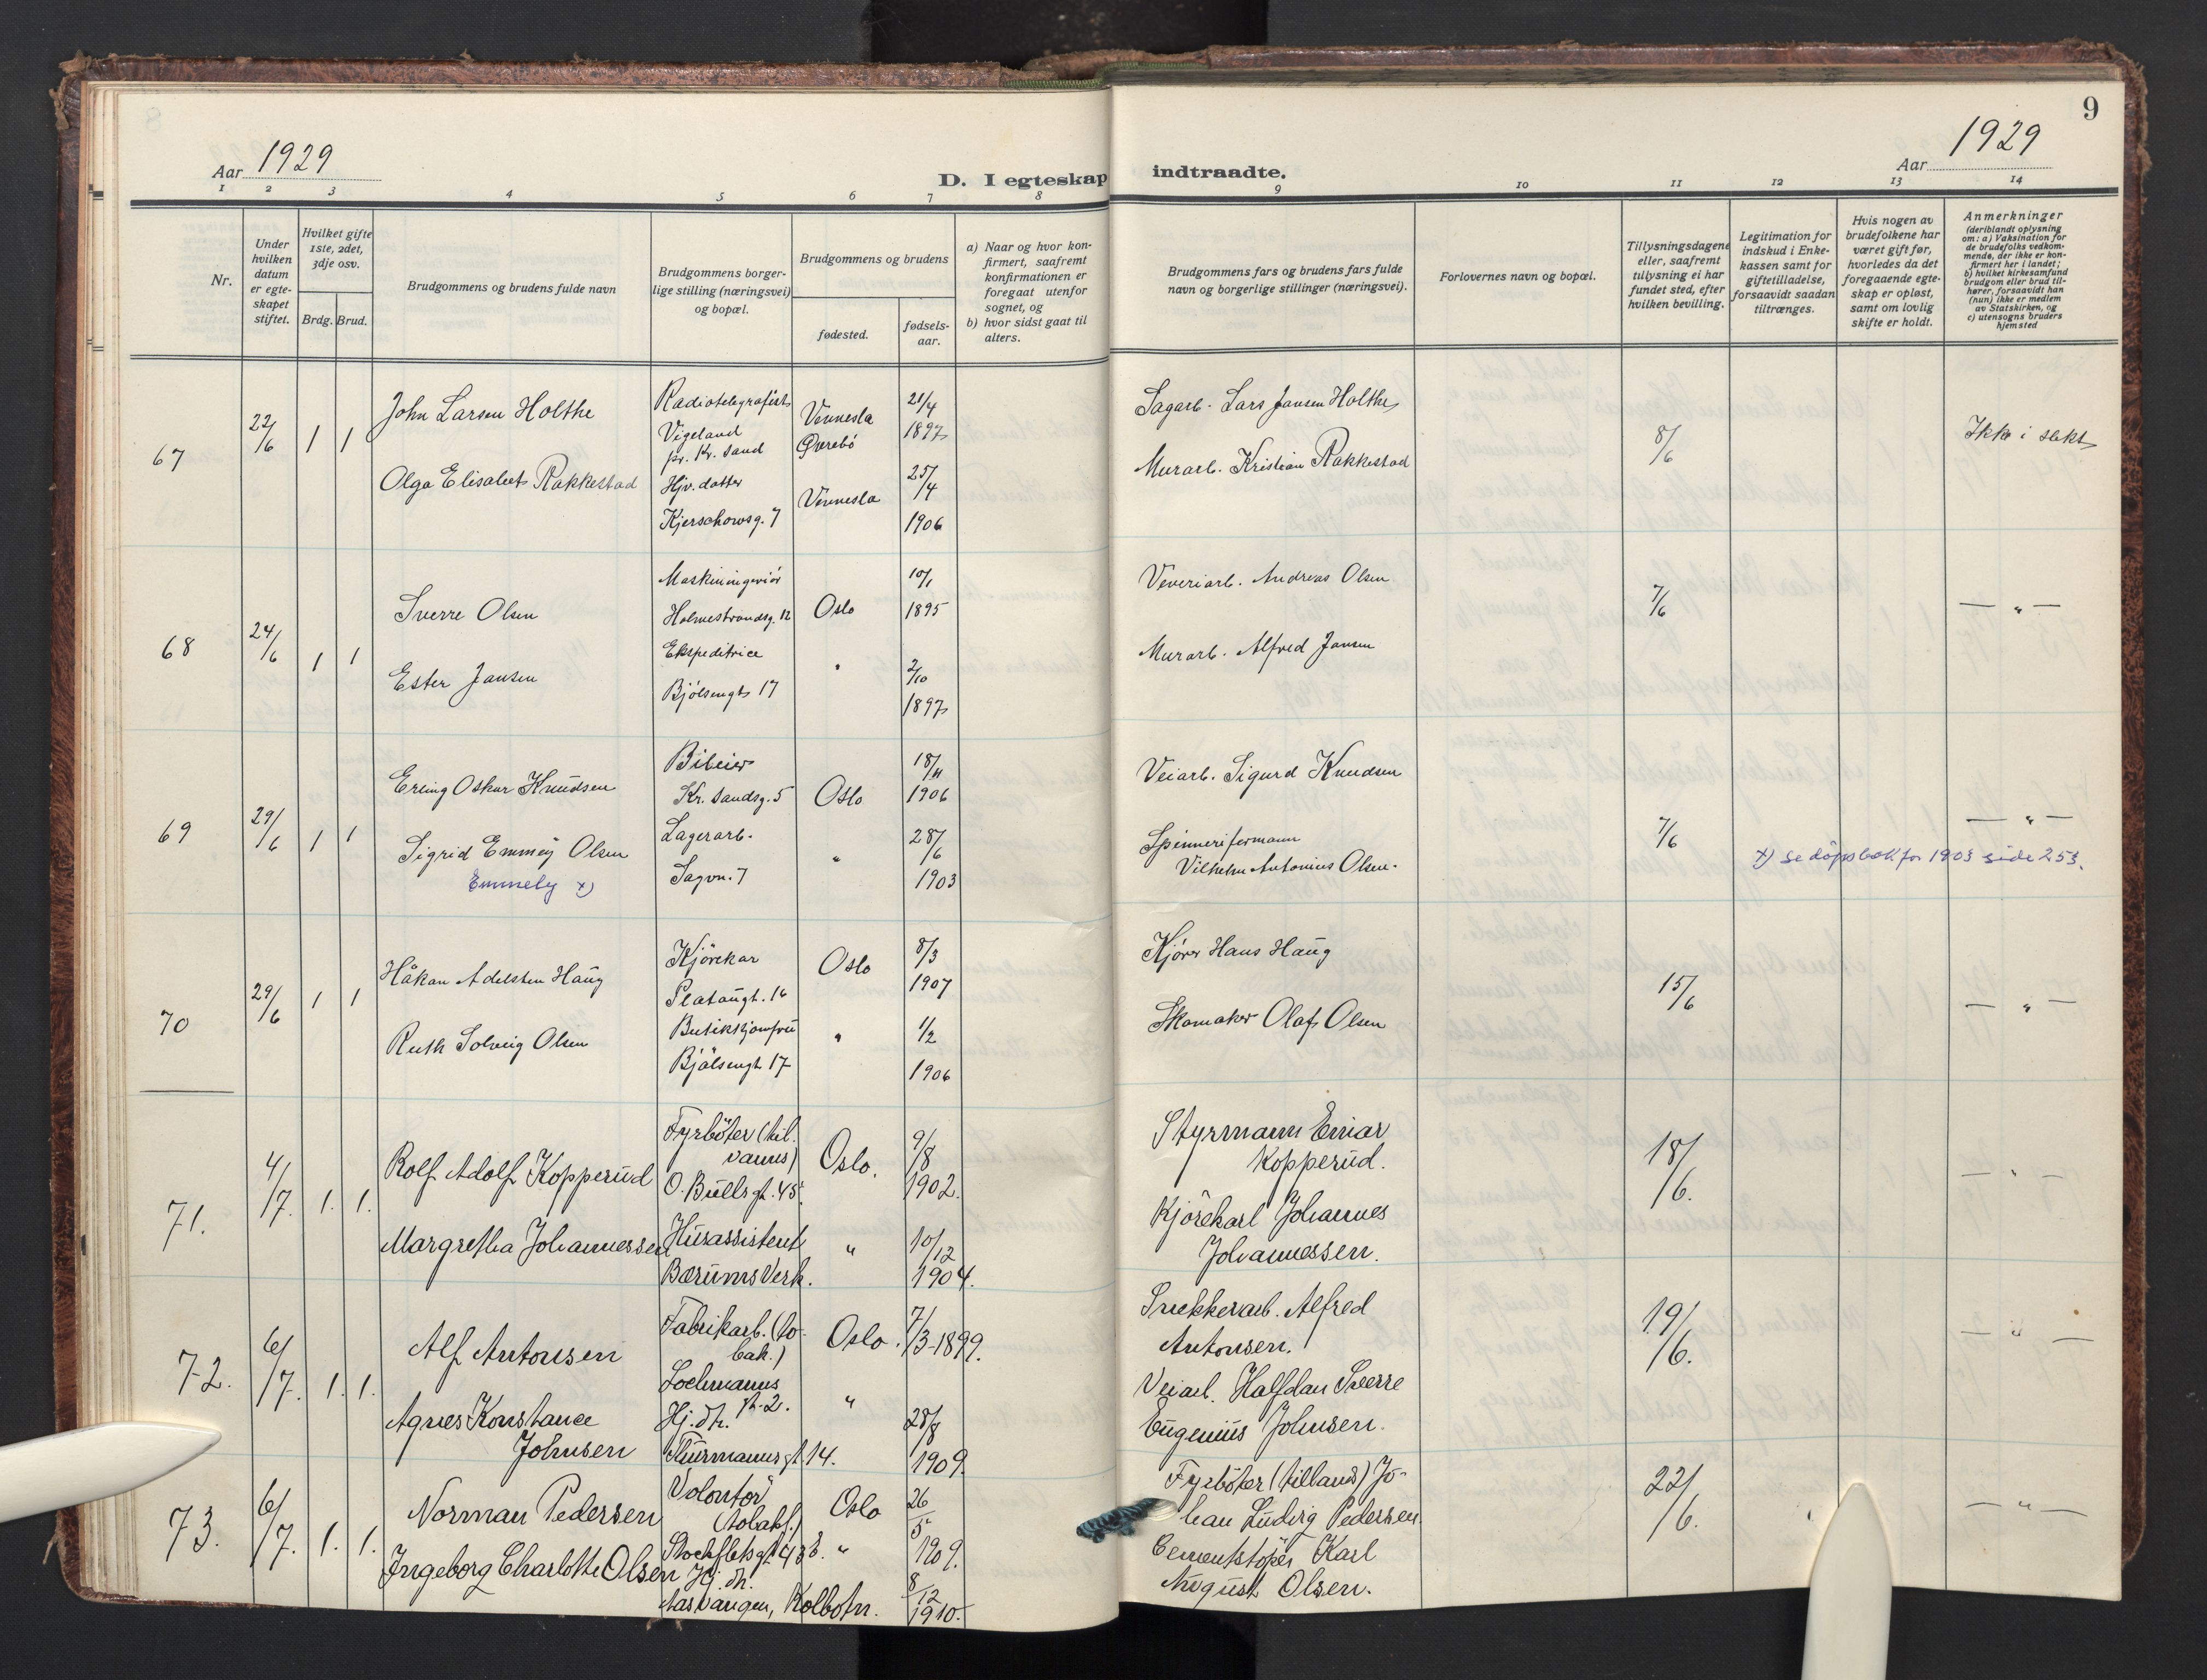 9
Aar 1929
D. I egteskap indtraadte.
Aar 1929
1 2 3 4 5 6 7 8 9 10 11 12 13 14
Nr.
Under hvilken datum er egteskapet stiftet.
Hvilket gifte 1ste, 2det, 3dje osv.
Brdg. Brud.
Brudgommens og brudens fulde navn
Brudgommens borgerlige stilling (næringsvei) og bopæl.
Brudgommens og brudens
fødested.
fødselsaar.
a) Naar og hvor konfirmert, saafremt konfirmationen er foregaat utenfor sognet, og
b) hvor sidst gaat til alters.
Brudgommens fars og brudens fars fulde navn og borgerlige stillinger (næringsvei).
Forlovernes navn og bopæl.
Tillysningsdagene eller, saafremt tillysning ei har fundet sted, efter hvilken bevilling.
Legitimation for indskud i Enkekassen samt for giftetilladelse, forsaavidt saadan tiltrænges.
Hvis nogen av brudefolkene har været gift før, hvorledes da det foregaaende egteskap er opløst, samt om lovlig skifte er holdt.
Anmerkninger (deriblandt oplysning om: a) Vaksination for de brudefolks vedkommende, der ikke er konfirmert her i landet; b) hvilket kirkesamfund brudgom eller brud tilhører, forsaavidt han (hun) ikke er medlem av Statskirken, og c) utensogns bruders hjemsted
67 22/6 1 1
John Larsen Holthe
Radiotelegrafist
Vigeland
pr. Kr. sand
Vennesla
Øvrebö
21/4
1897
Sagarb. Lars Jansen Holthe
8/6
Ikke i slekt
Olga Elisabet Rakkestad
Hjv. datter
Kjerschowsg. 7
Vennesla
25/4
1906
Murarb. Kristian Rakkestad
68 24/6 1 1
Sverre Olsen
Maskiningeniör
Holmestrandsg. 12
Oslo
10/1
1895
Veveriarb. Andreas Olsen
7/6
— " —
Ester Jansen
Ekspeditrice
Bjölsengt 17
"
2/10
1897
Murarb. Alfred Jansen
69 29/6 1 1
Erling Oskar Knudsen
Bileier
Kr. sandsg. 5
Oslo
18/11
1906
Veiarb. Sigurd Knudsen
7/6
— " —
Sigrid Emmey Olsen
Emmely x)
Lagerarb.
Sagvn. 7
"
28/6
1903
Spinneriformann
Vilhelm Antonius Olsen.
x) se dåpsbok for 1903 side 253.
70 29/6 1 1
Håkan Adelsten Haug
Kjörekar
Plataugt. 16
Oslo
8/3
1907
Kjörer Hans Haug
15/6
— " —
Ruth Solveig Olsen
Butikkjomfru
Bjölsengt 17
"
1/2
1906
Skomaker Olaf Olsen
71. 4/7. 1. 1.
Rolf Adolf Kopperud
Fyrböter (til.
vanns)
O. Bullsgt. 45.
Oslo.
9/8
1902.
Styrmann Einar
Kopperud.
18/6.
— " —
Margretha Johannessen
Husassistent
Bærums Verk.
"
10/12
1904.
Kjörekarl Johannes
Johannessen.
72. 6/7. 1. 1.
Alf Antonsen
Fabrikarb. (to-
bak.)
Lochmanns
gt. 2.
Oslo.
7/3-1899.
Snekkerarb. Alfred
Antonsen.
19/6.
— " —
Agnes Konstance
Johnsen
Hj. dt.
Thurmannsgt. 14.
"
28/8
1909.
Veiarb. Halfdan Sverre
Eugenius Johnsen.
73. 6/7. 1. 1.
Norman Pedersen
Volontör
(tobakf.)
Stockfletsgt. 43 b.
Oslo
26/5
1909.
Fyrböter (tillands) Jo-
han Ludvig Pedersen.
22/6.
— " —
Ingeborg Charlotte Olsen
Hj. dt.
Aasvangen, Kolbotn.
"
8/12
1910.
Cementstöper Karl
August Olsen.